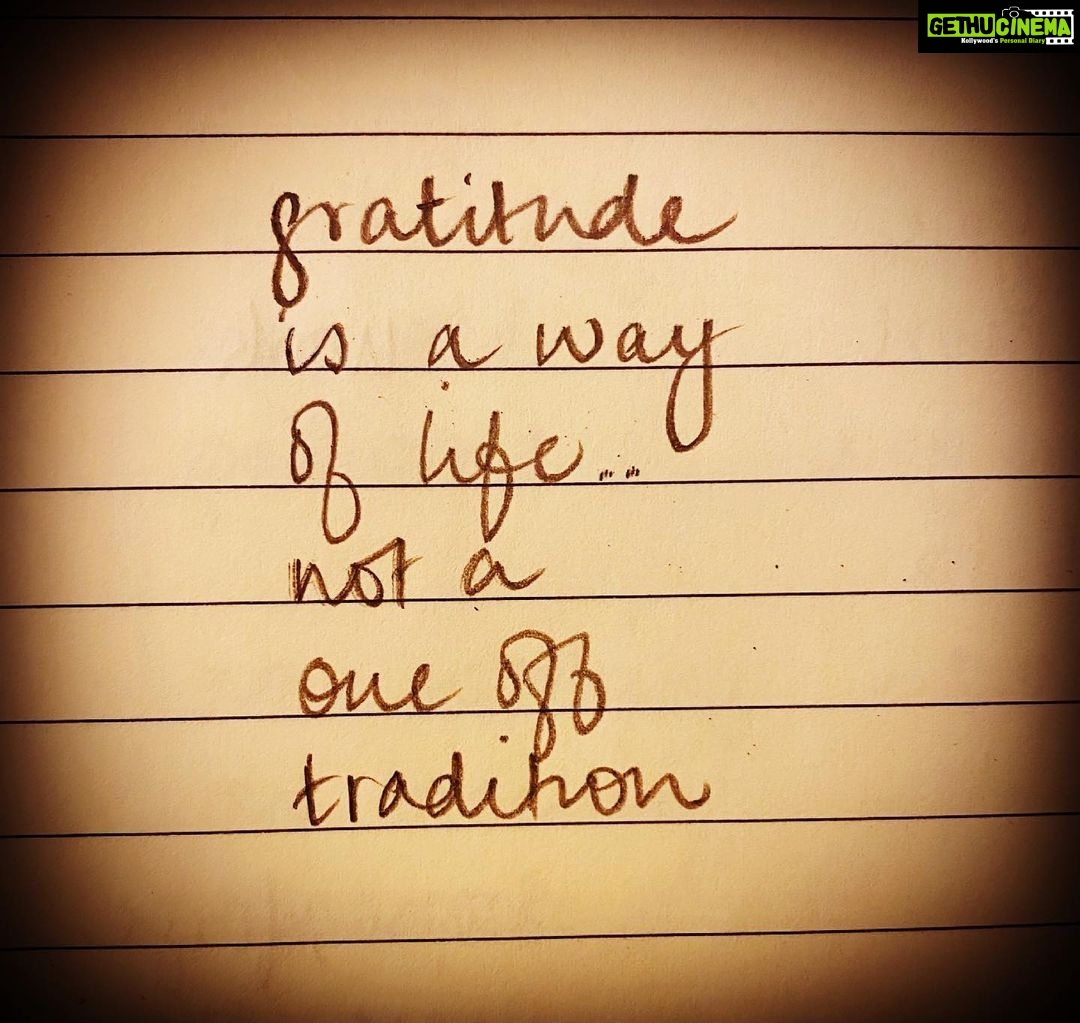 GETHU CINEMA
Kollywood's Personal Diary
gratitude
is a way
of life......
not a
one off
tradition